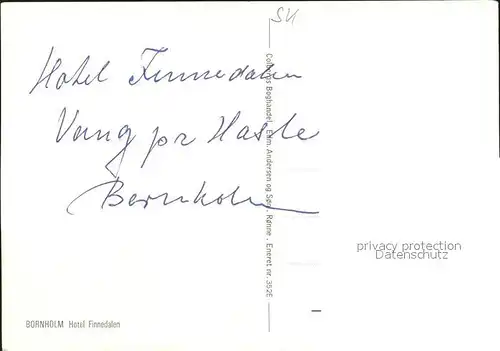 SU
Hotel Finnedalen
Vang pr Hasle
Bornholm
Colbergs Boghandel . Edm. Andersen og Søn . Rønne . Eneret nr. 352E
privacy protection
Datenschutz
BORNHOLM Hotel Finnedalen